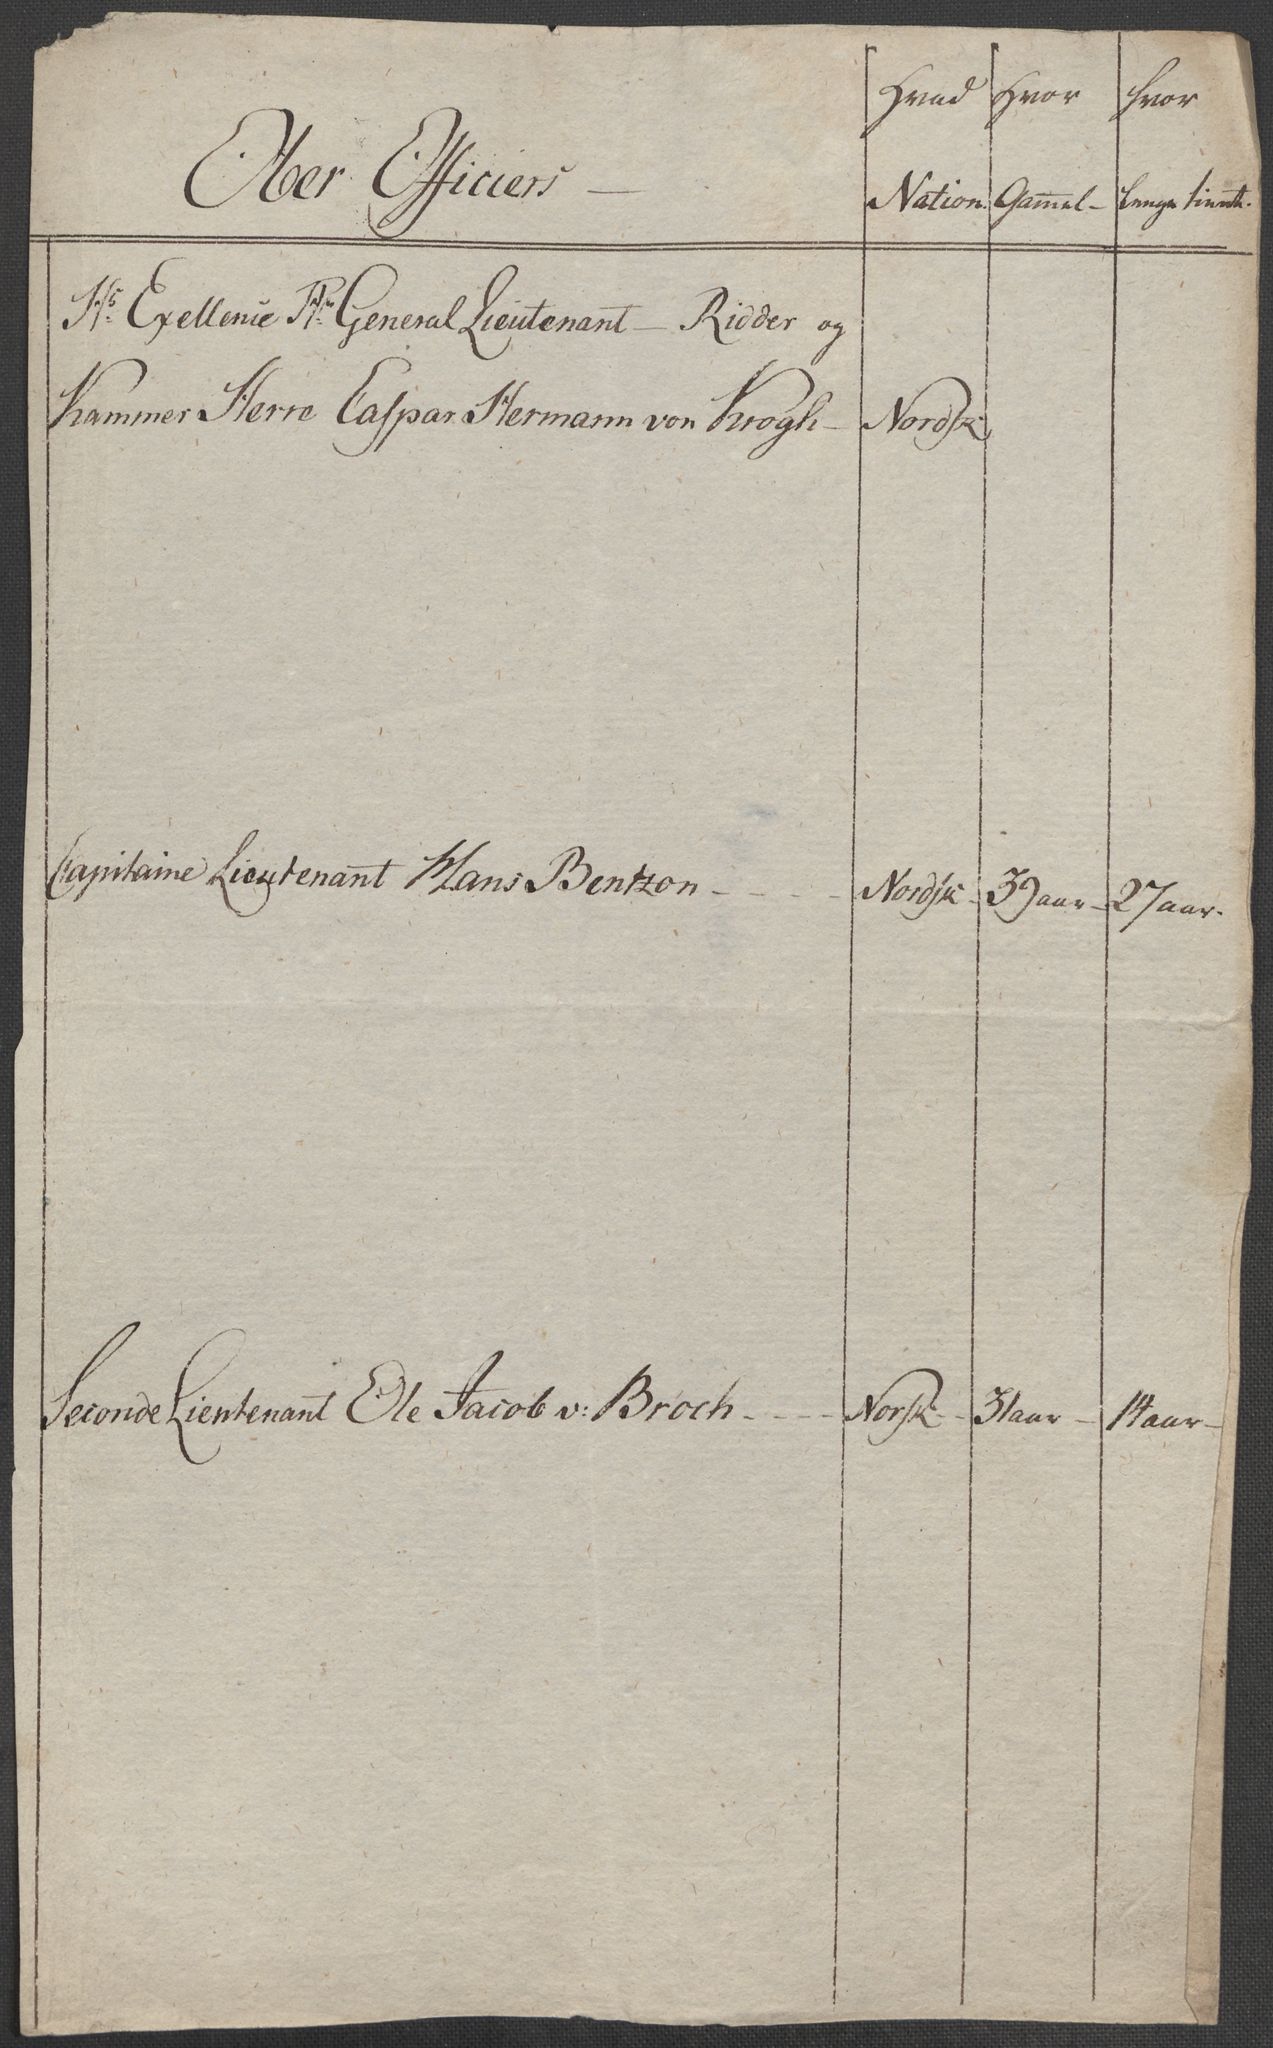 Hvad Hvor hvor
Ober Officiers —
Nation. Gam̄el - lenge tient.
Hs Exellence Hr General Lieutenant — Ridder og
Kammer Herre Caspar Hermann von Krogh - Nordsk
Capitaine Lieutenant Hans Bentzon - - - - Nordsk - 39 aar - 27 aar.
Seconde Lieutenant Ole Jacob v: Broch - - - - Norsk - 31 aar - 14 aar -